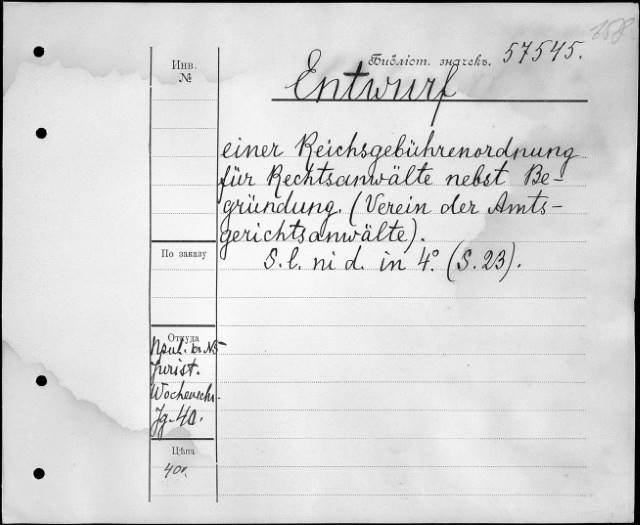 158
Библіот. значекъ. 57545.
Инв.
№
Entwurf
einer Reichsgebührenordnung
für Rechtsanwälte nebst Be-
gründung. (Verein der Amts-
gerichtsanwälte).
S. l. ni d. in 4°. (S. 23).
По заказу
Откуда
къ № 5
Jurist.
Wochenschr.
Jg. 40.
Цѣна
40к.